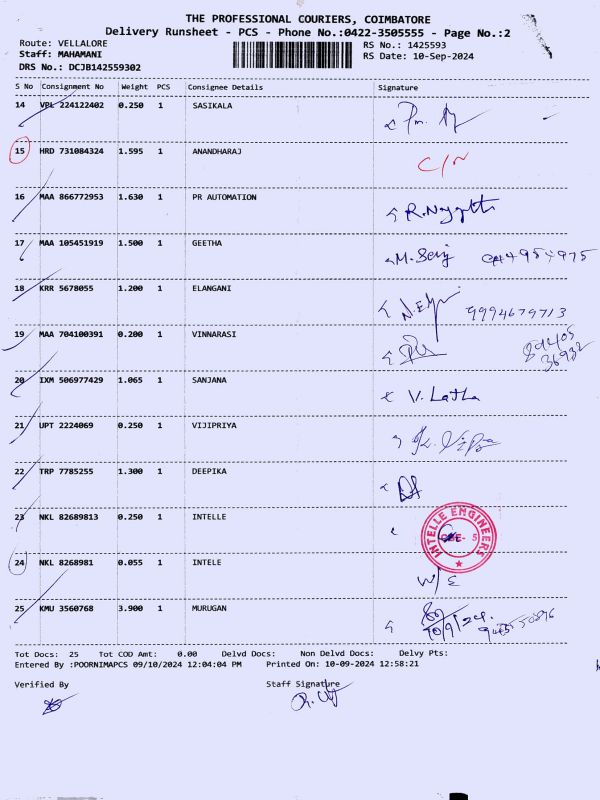 THE PROFESSIONAL COURIERS, COIMBATORE
Delivery Runsheet - PCS - Phone No.:0422-3505555 - Page No.:2
Route: VELLALORE RS No.: 1425593
Staff: MAHAMANI RS Date: 10-Sep-2024
DRS No.: DCJB142559302
S No Consignment No Weight PCS Consignee Details Signature
14 VPL 224122402 0.250 1 SASIKALA
15 HRD 731084324 1.595 1 ANANDHARAJ C/N
16 MAA 866772953 1.630 1 PR AUTOMATION
17 MAA 105451919 1.500 1 GEETHA
18 KRR 5678055 1.200 1 ELANGANI 9994679713
19 MAA 704100391 0.200 1 VINNARASI
20 IXM 506977429 1.065 1 SANJANA V. Latha
21 UPT 2224069 0.250 1 VIJIPRIYA
22 TRP 7785255 1.300 1 DEEPIKA
23 NKL 82689813 0.250 1 INTELLE INTELLE ENGINEERS
24 NKL 8268981 0.055 1 INTELE W/E
25 KMU 3560768 3.900 1 MURUGAN 10/9/24
Tot Docs: 25 Tot COD Amt: 0.00 Delvd Docs: Non Delvd Docs: Delvy Pts:
Entered By :POORNIMAPCS 09/10/2024 12:04:04 PM Printed On: 10-09-2024 12:58:21
Verified By Staff Signature